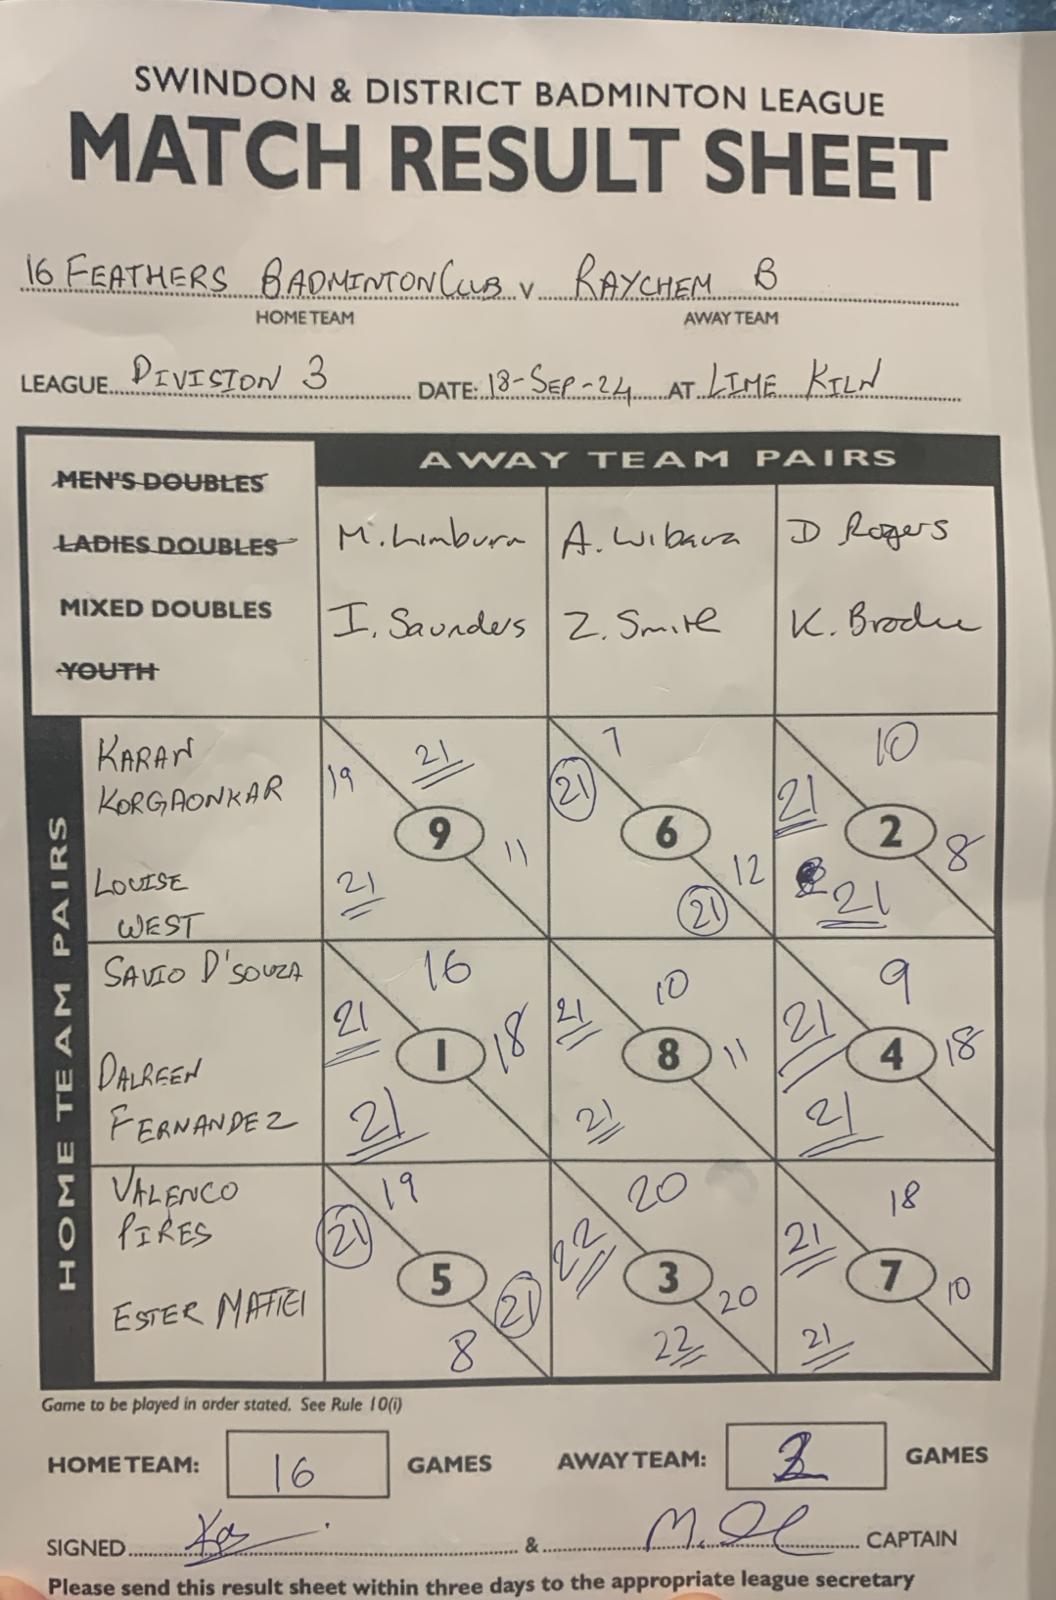 SWINDON & DISTRICT BADMINTON LEAGUE
MATCH RESULT SHEET
16 FEATHERS BADMINTON CLUB v RAYCHEM B
HOME TEAM AWAY TEAM
LEAGUE DIVISION 3 DATE: 18-SEP-24 AT LIME KILN
AWAY TEAM PAIRS
MEN'S DOUBLES
LADIES DOUBLES
MIXED DOUBLES
YOUTH
M. Limburn A. Wibava D Rogers
I. Saunders Z. Smith K. Brodie
HOME TEAM PAIRS
KARAN
KORGAONKAR
LOUISE
WEST
19 21
9
21 11
7
21
6
12
21
10
21
2
8
21
SAVIO D'SOUZA
DALREEN
FERNANDEZ
16
21
1
18
21
10
21
8
11
21
9
21
4
18
21
VALENCO
PIRES
ESTER MATEI
19
21
5
21
8
20
22
3
20
22
18
21
7
10
21
Game to be played in order stated. See Rule 10(i)
HOME TEAM: 16 GAMES AWAY TEAM: 2 GAMES
SIGNED & CAPTAIN
Please send this result sheet within three days to the appropriate league secretary